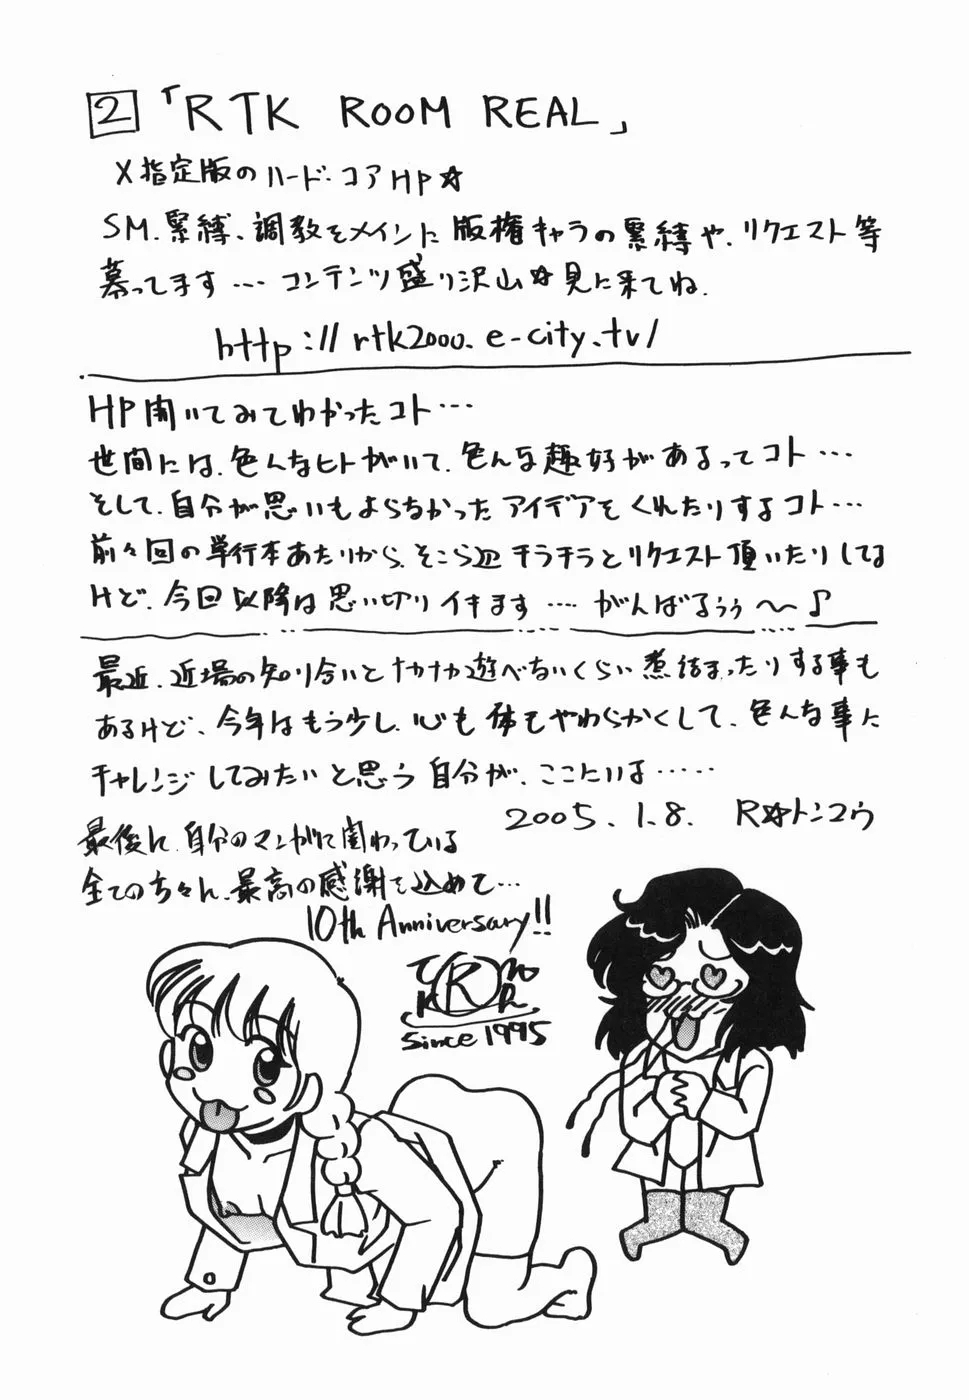 2 「RTK ROOM REAL」
X指定版のハード・コアHP☆
SM.緊縛、調教をメインに版権キャラの緊縛や、リクエスト等
募ってます… コンテンツ盛り沢山☆見に来てね.
http://rtk2000.e-city.tv/
HP開いてみてわかったコト…
世間には、色んなヒトがいて、色んな趣好があるってコト…
そして、自分が思いもよらなかったアイデアをくれたりするコト…
前々回の単行本あたりから、そこら辺チラチラとリクエスト頂いたりしてる
けど、今回以降は思い切りイキます…. がんばるぅぅ〜♪
最近、近場の知り合いとナカナカ遊べないくらい煮詰まったりする事も
あるけど、今年はもう少し、心も体もやわらかくして、色んな事に
チャレンジしてみたいと思う自分が、ここにいる……
2005.1.8. R☆トンコウ
最後に、自分のマンガに関わっている
全ての方々に、最高の感謝を込めて…
10th Anniversary!!
R
since 1995